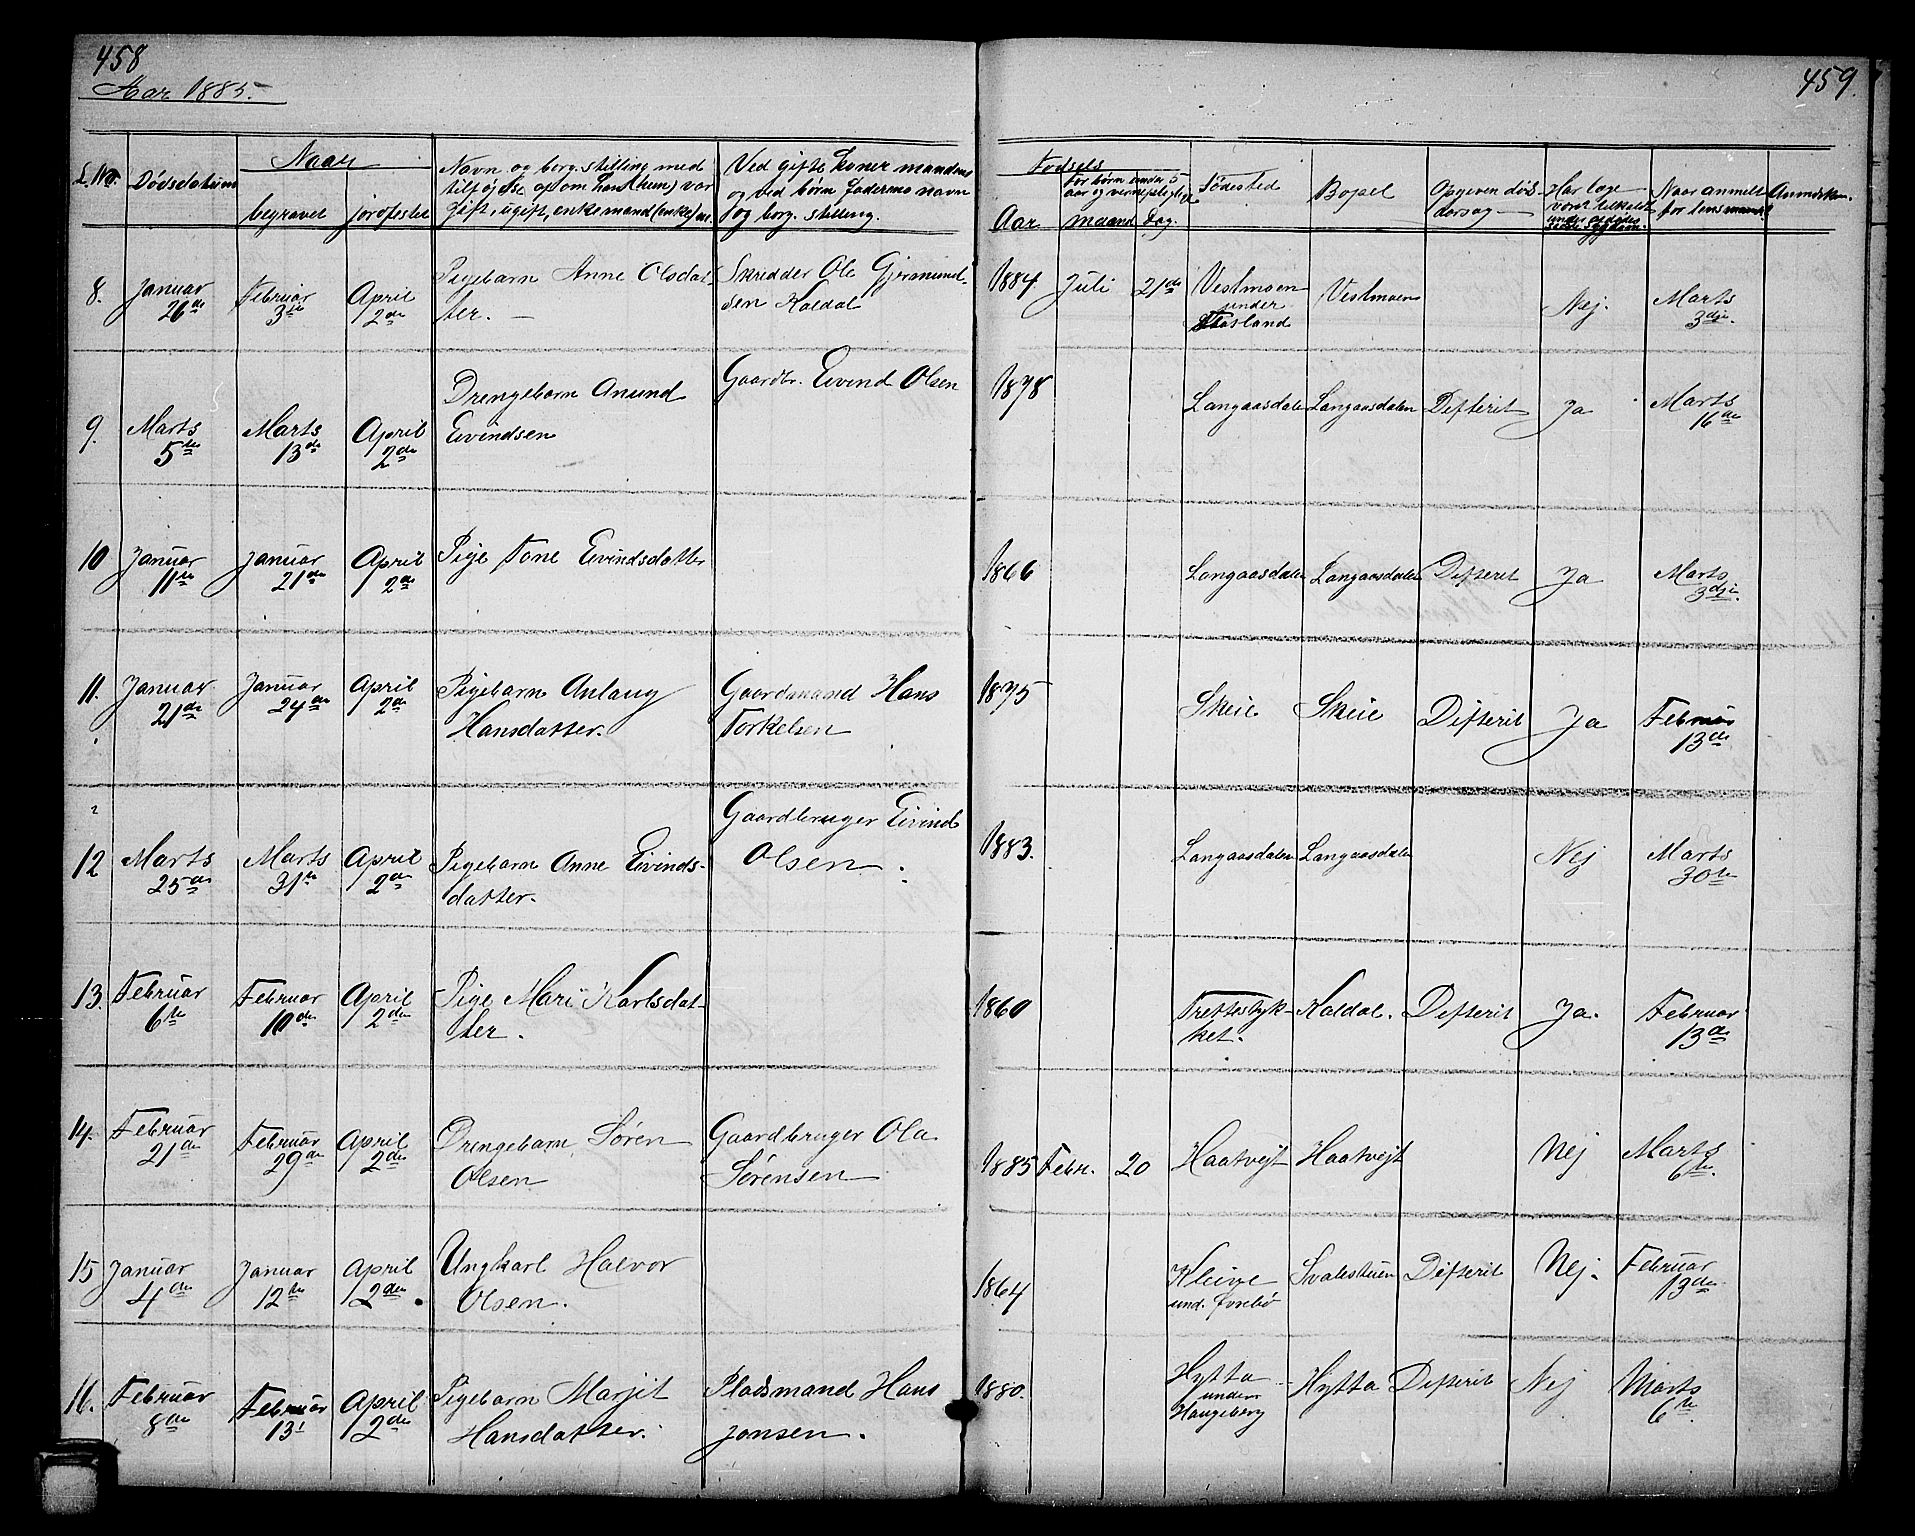 458
Aar 1885.
459.
L. No.
Dödsdatum
Naar
begravet
jordfestet
Navn og borg. stilling med
tilföjelse op om han (hun) var
gift, ugift, enkemand (enke) m.
Ved gifte koner mandens
og ved börn faderens navn
og borg. stilling.
Födsels
Aar
for börn under 5
aar og vernepligtige
maaned
dag.
Födested
Bopæl
Opgiven döds-
aarsag
Har læge
været tilkaldt
under
Naar anmeldt
for lensmand?
Anmerkn.
8. Januar Februar April Pigebarn Anne Olsdat- Skredder Ole Gjermund- 1884 Juli 21de Vestmoen Vestmoen Nej. Marts
26de 3die 2den ter. sen Kaldal under 3dje.
Aasland
9. Marts Marts April Drengebarn Anund Gaardbr. Eivind Olsen 1878 Langaasdalen Langaasdalen Difterit Ja Marts
5te 13de 2den Eivindsen 16de
10 Januar Januar April Pige Tone Eivindsdatter 1866 Langaasdalen Langaasdalen Difterit Ja Marts
11te 21de 2de 3dje.
11. Januar Januar April Pigebarn Anlaug Gaardmand Hans 1875 Skeie Skeie Difterit Ja Februar
21de 24de 2de Hansdatter. Torkelsen 13de
12 Marts Marts April Pigebarn Anne Eivinds- Gaardbruger Eivind 1883. Langaasdalen Langaasdalen Nej Marts
25de 31te 2de datter. Olsen. 30te
13. Februar Februar April Pige Mari Karlsdat- 1860 Trettestyk- Kaldal. Difterit Ja. Februar
6te 10de 2den ter. ket. 13de
14. Februar Februar April Drengebarn Sören Gaardbruger Ola 1885 Febr. 20 Haatvejt Haatvejt Nej Marts
21de 29de 2den Olsen Sörensen 6te.
15 Januar Januar April Ungkarl Halvor 1864 Kleive Svalestuen Difterit Nej. Februar
4de 12te 2den. Olsen. und. Övrebö 13de
16. Februar Februar April Pigebarn Marjit Pladsmand Hans 1880. Hytta Hytta Difterit Nej Marts
8de 13 2den Hansdatter. Jonsen. under 6te.
Haugeberg